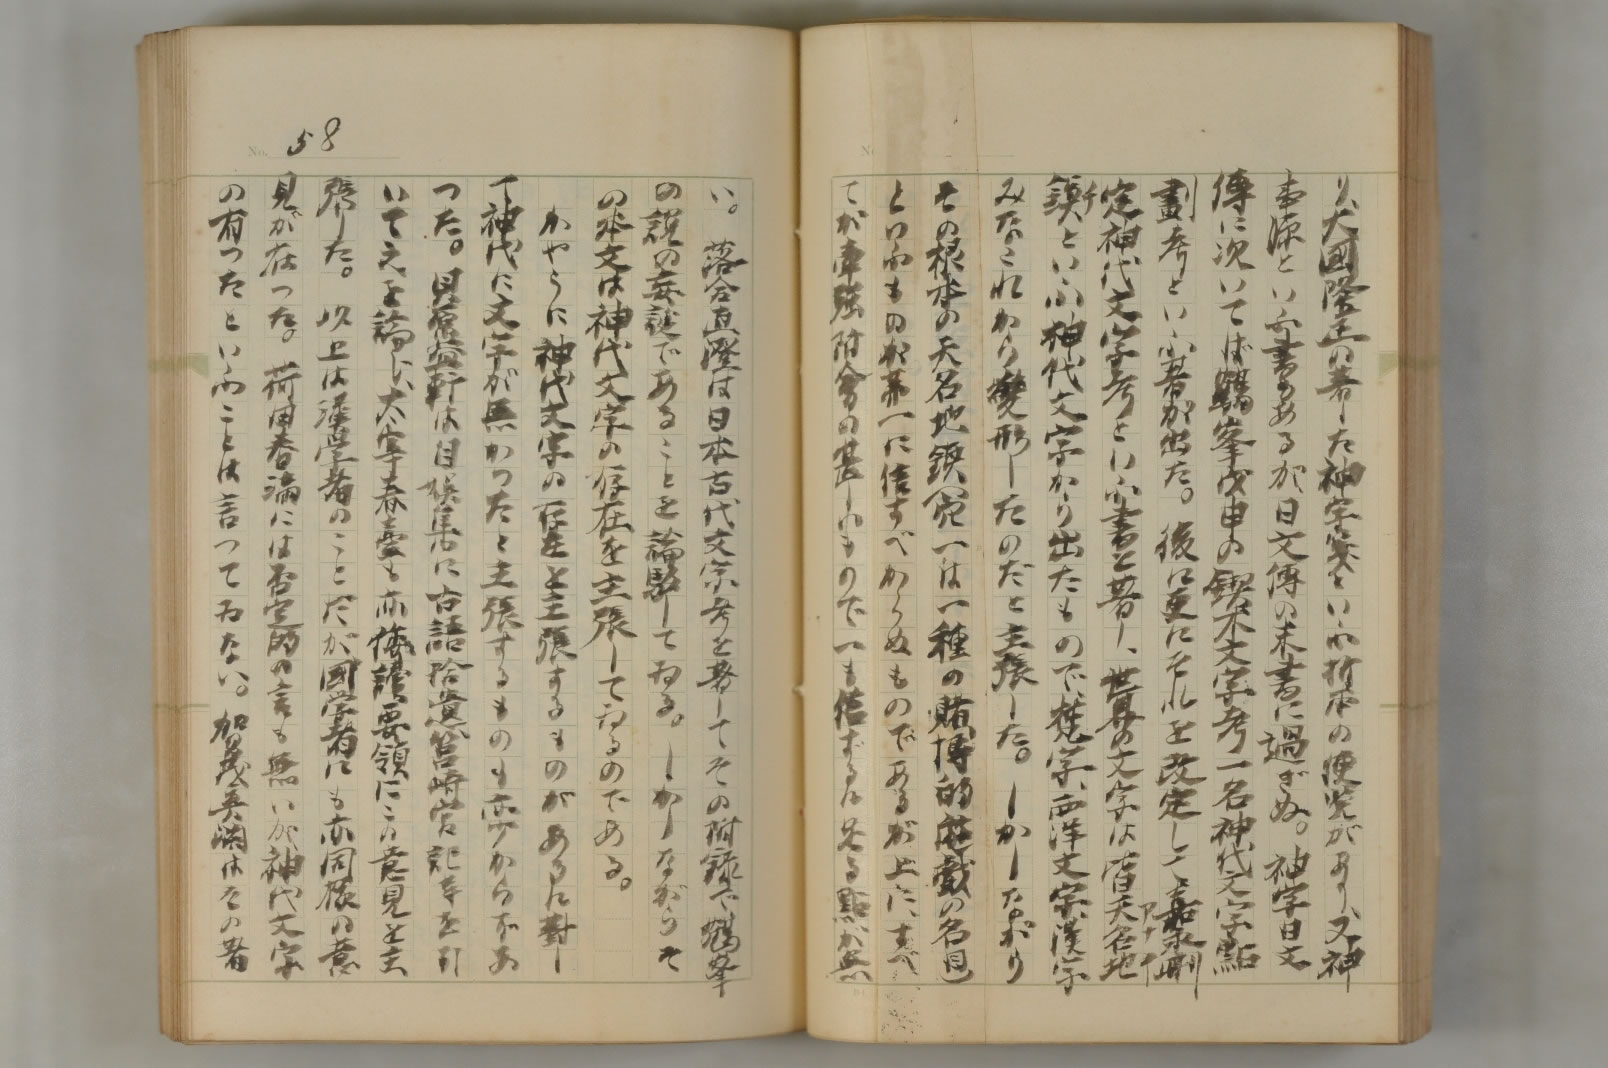 り、大国隆正の著した神字箋といふ折本の便覧があり、又神
字原といふ書もあるが日文傳の末書に過ぎぬ。神字日文
傳に次いでは鶴峯戊申の鍥木文字考一名神代文字點
劃考といふ著が出た。後に更にそれを改定して嘉永刪
定神代文字考といふ書を著し、世界の文字は皆天名地
アナイチ
鎮といふ神代文字から出たもので、梵字、西洋文字、漢字
みなこれから變形したのだと主張した。しかしながら
その根本の天名地鎮(宛一は一種の賭博的遊戯の名目)
といふものが第一に信すべからぬものであるが上に、すべ
てが牽強附會の甚しいもので一も信ずるに足る點が無
58
い。落合直澄は日本古代文字考を著してその附録で鶴峯
の説の妄誕であることを論駁してゐる。しかしながらそ
の本文は神代文字の存在を主張してゐるのである。
かやうに神代文字の存在を主張するものがあるに對し
て神代に文字が無かつたと主張するものも亦少からずあ
つた。貝原益軒は自娯集に古語拾遺筥崎宮記等を引
いて之を論じ、太宰春臺も亦倭讀要領にこの意見を主
張した。以上は漢学者のことだが國学者にも亦同様の意
見が在つた。荷田春満には否定的の言も無いが神代文字
の有つたといふことは言つてゐない。加茂真淵はその著
No.